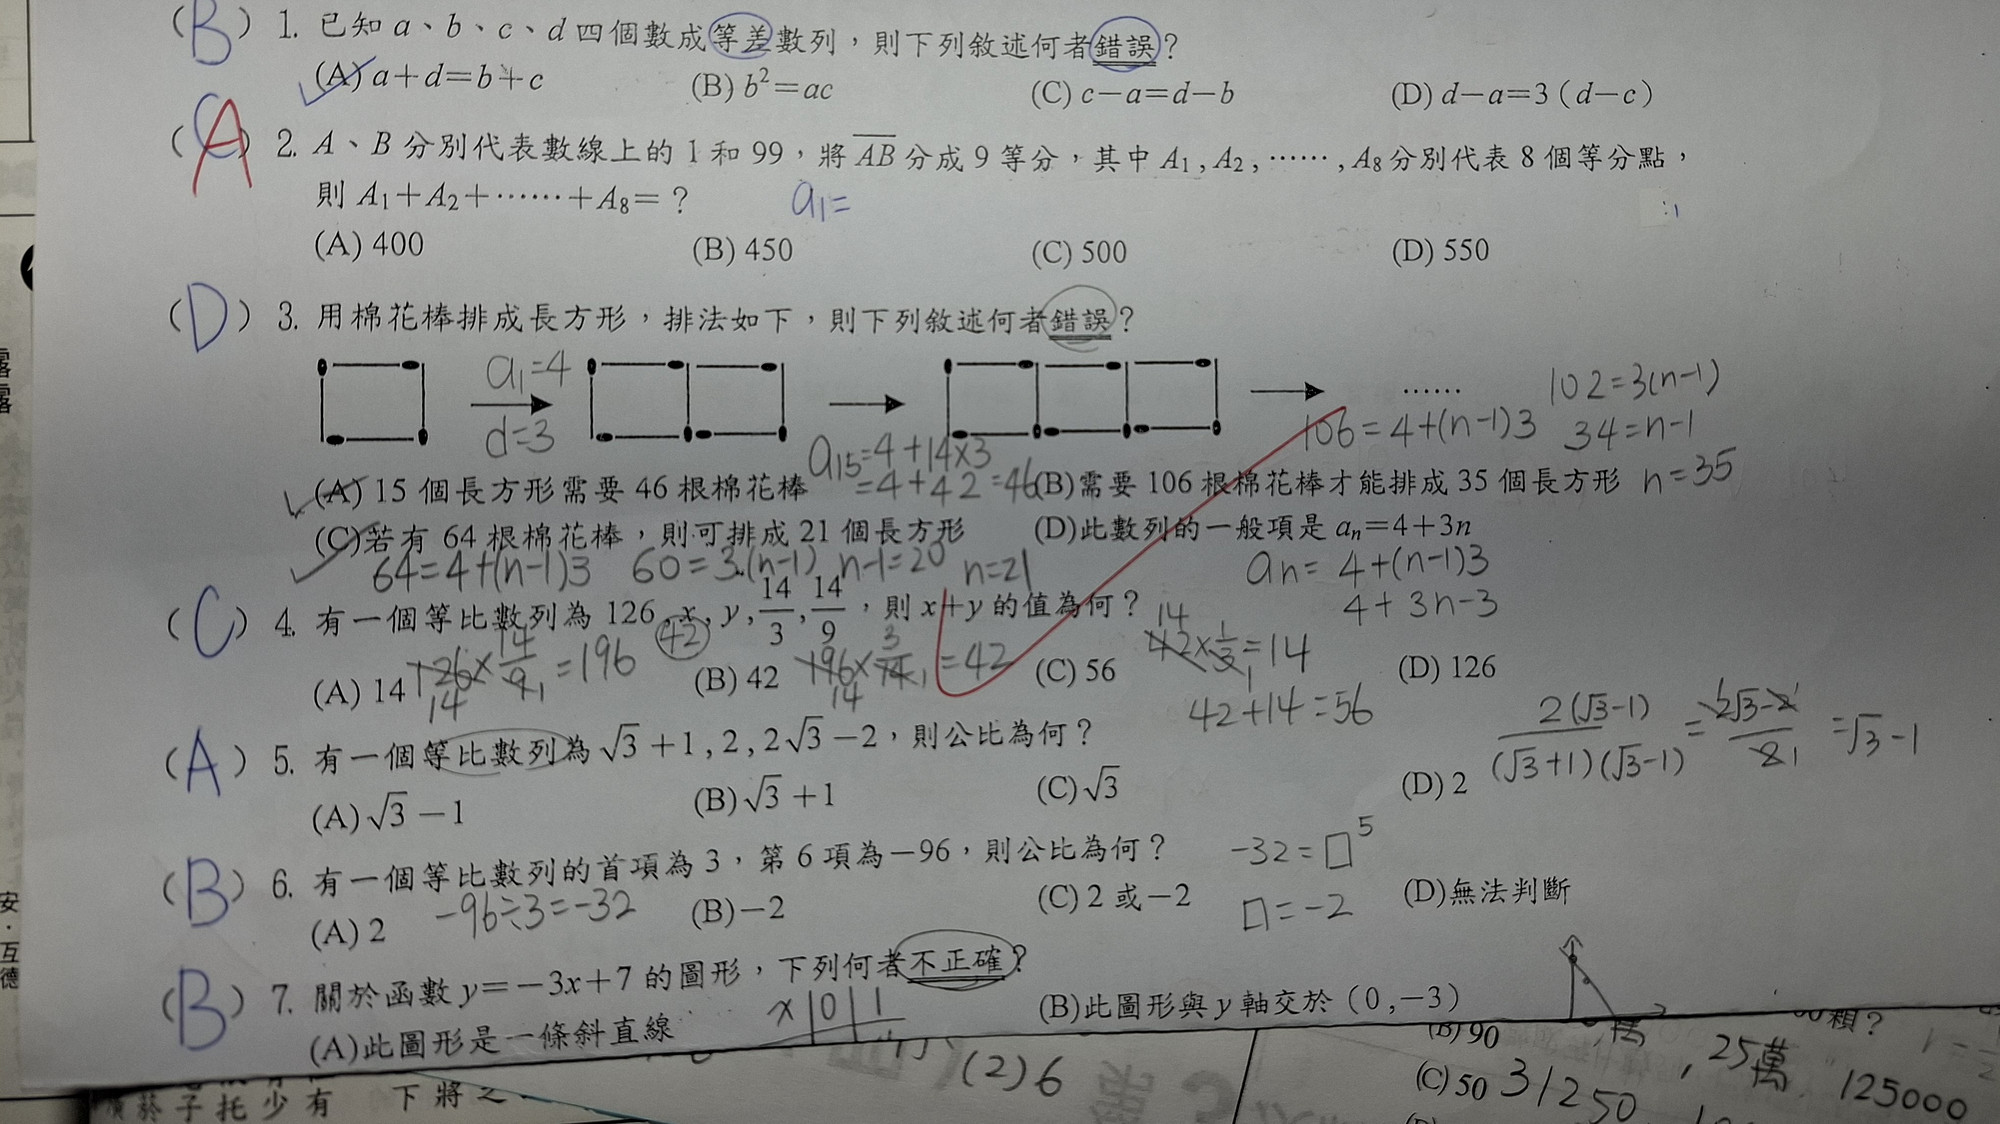 (B) 1. 已知 a、b、c、d 四個數成等差數列，則下列敘述何者錯誤？
(A) a+d=b+c (B) b²=ac (C) c−a=d−b (D) d−a=3（d−c）
(A) 2. A、B 分別代表數線上的 1 和 99，將 AB 分成 9 等分，其中 A₁ , A₂ , ⋯⋯ , A₈ 分別代表 8 個等分點，
則 A₁+A₂+⋯⋯+A₈=？ a₁=
(A) 400 (B) 450 (C) 500 (D) 550
(D) 3. 用棉花棒排成長方形，排法如下，則下列敘述何者錯誤？
a₁=4
d=3
⋯⋯
102=3(n-1)
106=4+(n-1)3 34=n-1
a₁₅=4+14×3
=4+42=46
(A) 15 個長方形需要 46 根棉花棒 (B)需要 106 根棉花棒才能排成 35 個長方形 n=35
(C)若有 64 根棉花棒，則可排成 21 個長方形 (D)此數列的一般項是 aₙ=4+3n
64=4+(n-1)3 60=3.(n-1) n-1=20 n=21 an= 4+(n-1)3
4+3n-3
(C) 4. 有一個等比數列為 126 , x , y , 14/3 , 14/9，則 x+y 的值為何？
(A) 14 (B) 42 (C) 56 (D) 126
126×14/9=196 42 196×3/14=42 42×1/3=14
42+14=56
(A) 5. 有一個等比數列為 √3+1 , 2 , 2√3−2，則公比為何？
2(√3-1)/(√3+1)(√3-1) = 2√3-2/2 =√3-1
(A) √3−1 (B) √3+1 (C) √3 (D) 2
(B) 6. 有一個等比數列的首項為 3，第 6 項為−96，則公比為何？ -32=□⁵
(A) 2 -96÷3=-32 (B)−2 (C) 2 或−2 □=-2 (D)無法判斷
(B) 7. 關於函數 y=−3x+7 的圖形，下列何者不正確？
x 0 1
(A)此圖形是一條斜直線 (B)此圖形與 y 軸交於（0 ,−3）
(B) 90
(2)6
25萬
(C) 50 31250 125000
子托少有
下將之
安．互
德